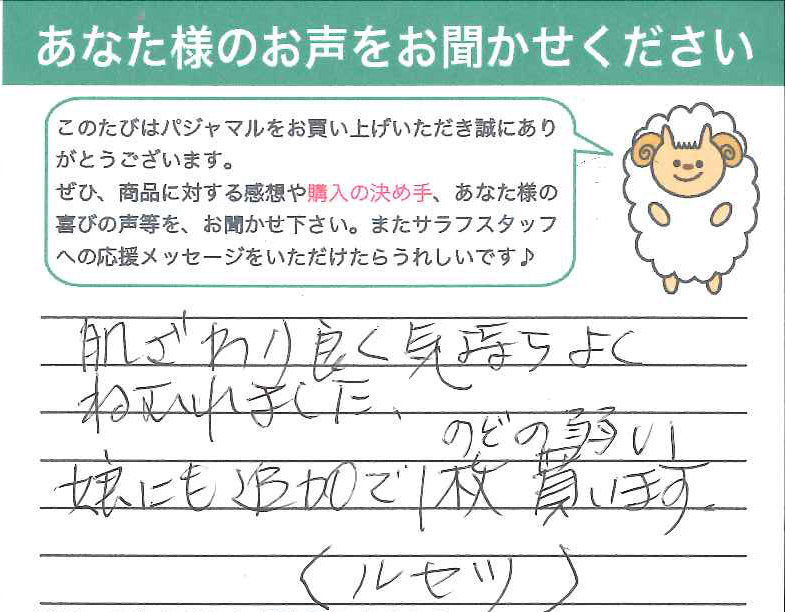 あなた様のお声をお聞かせください
このたびはパジャマルをお買い上げいただき誠にあり
がとうございます。
ぜひ、商品に対する感想や購入の決め手、あなた様の
喜びの声等を、お聞かせ下さい。またサラフスタッフ
への応援メッセージをいただけたらうれしいです♪
肌ざわり良く気持ちよく
ねむれました、
のどの弱い
娘にも追加で1枚買います。
(ルセツ)